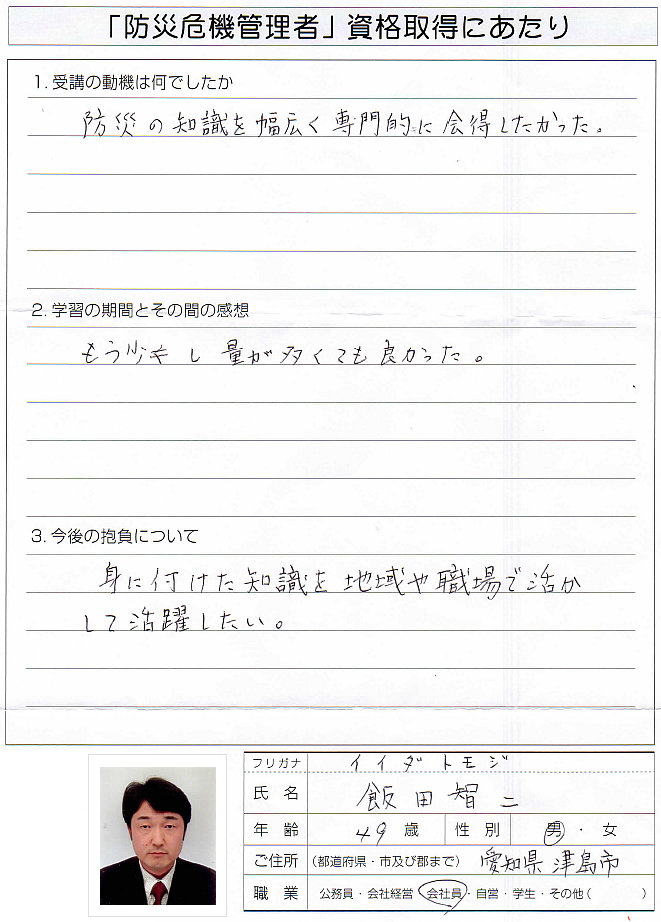 「防災危機管理者」資格取得にあたり
1. 受講の動機は何でしたか
防災の知識を幅広く専門的に会得したかった。
2. 学習の期間とその間の感想
もう少し量が多くても良かった。
3. 今後の抱負について
身に付けた知識を地域や職場で活か
して活躍したい。
フリガナ イイダ トモジ
氏 名 飯田智二
年 齢 49 歳 性 別 男 ・ 女
ご住所 (都道府県・市及び郡まで) 愛知県津島市
職 業 公務員・会社経営・会社員・自営・学生・その他( )